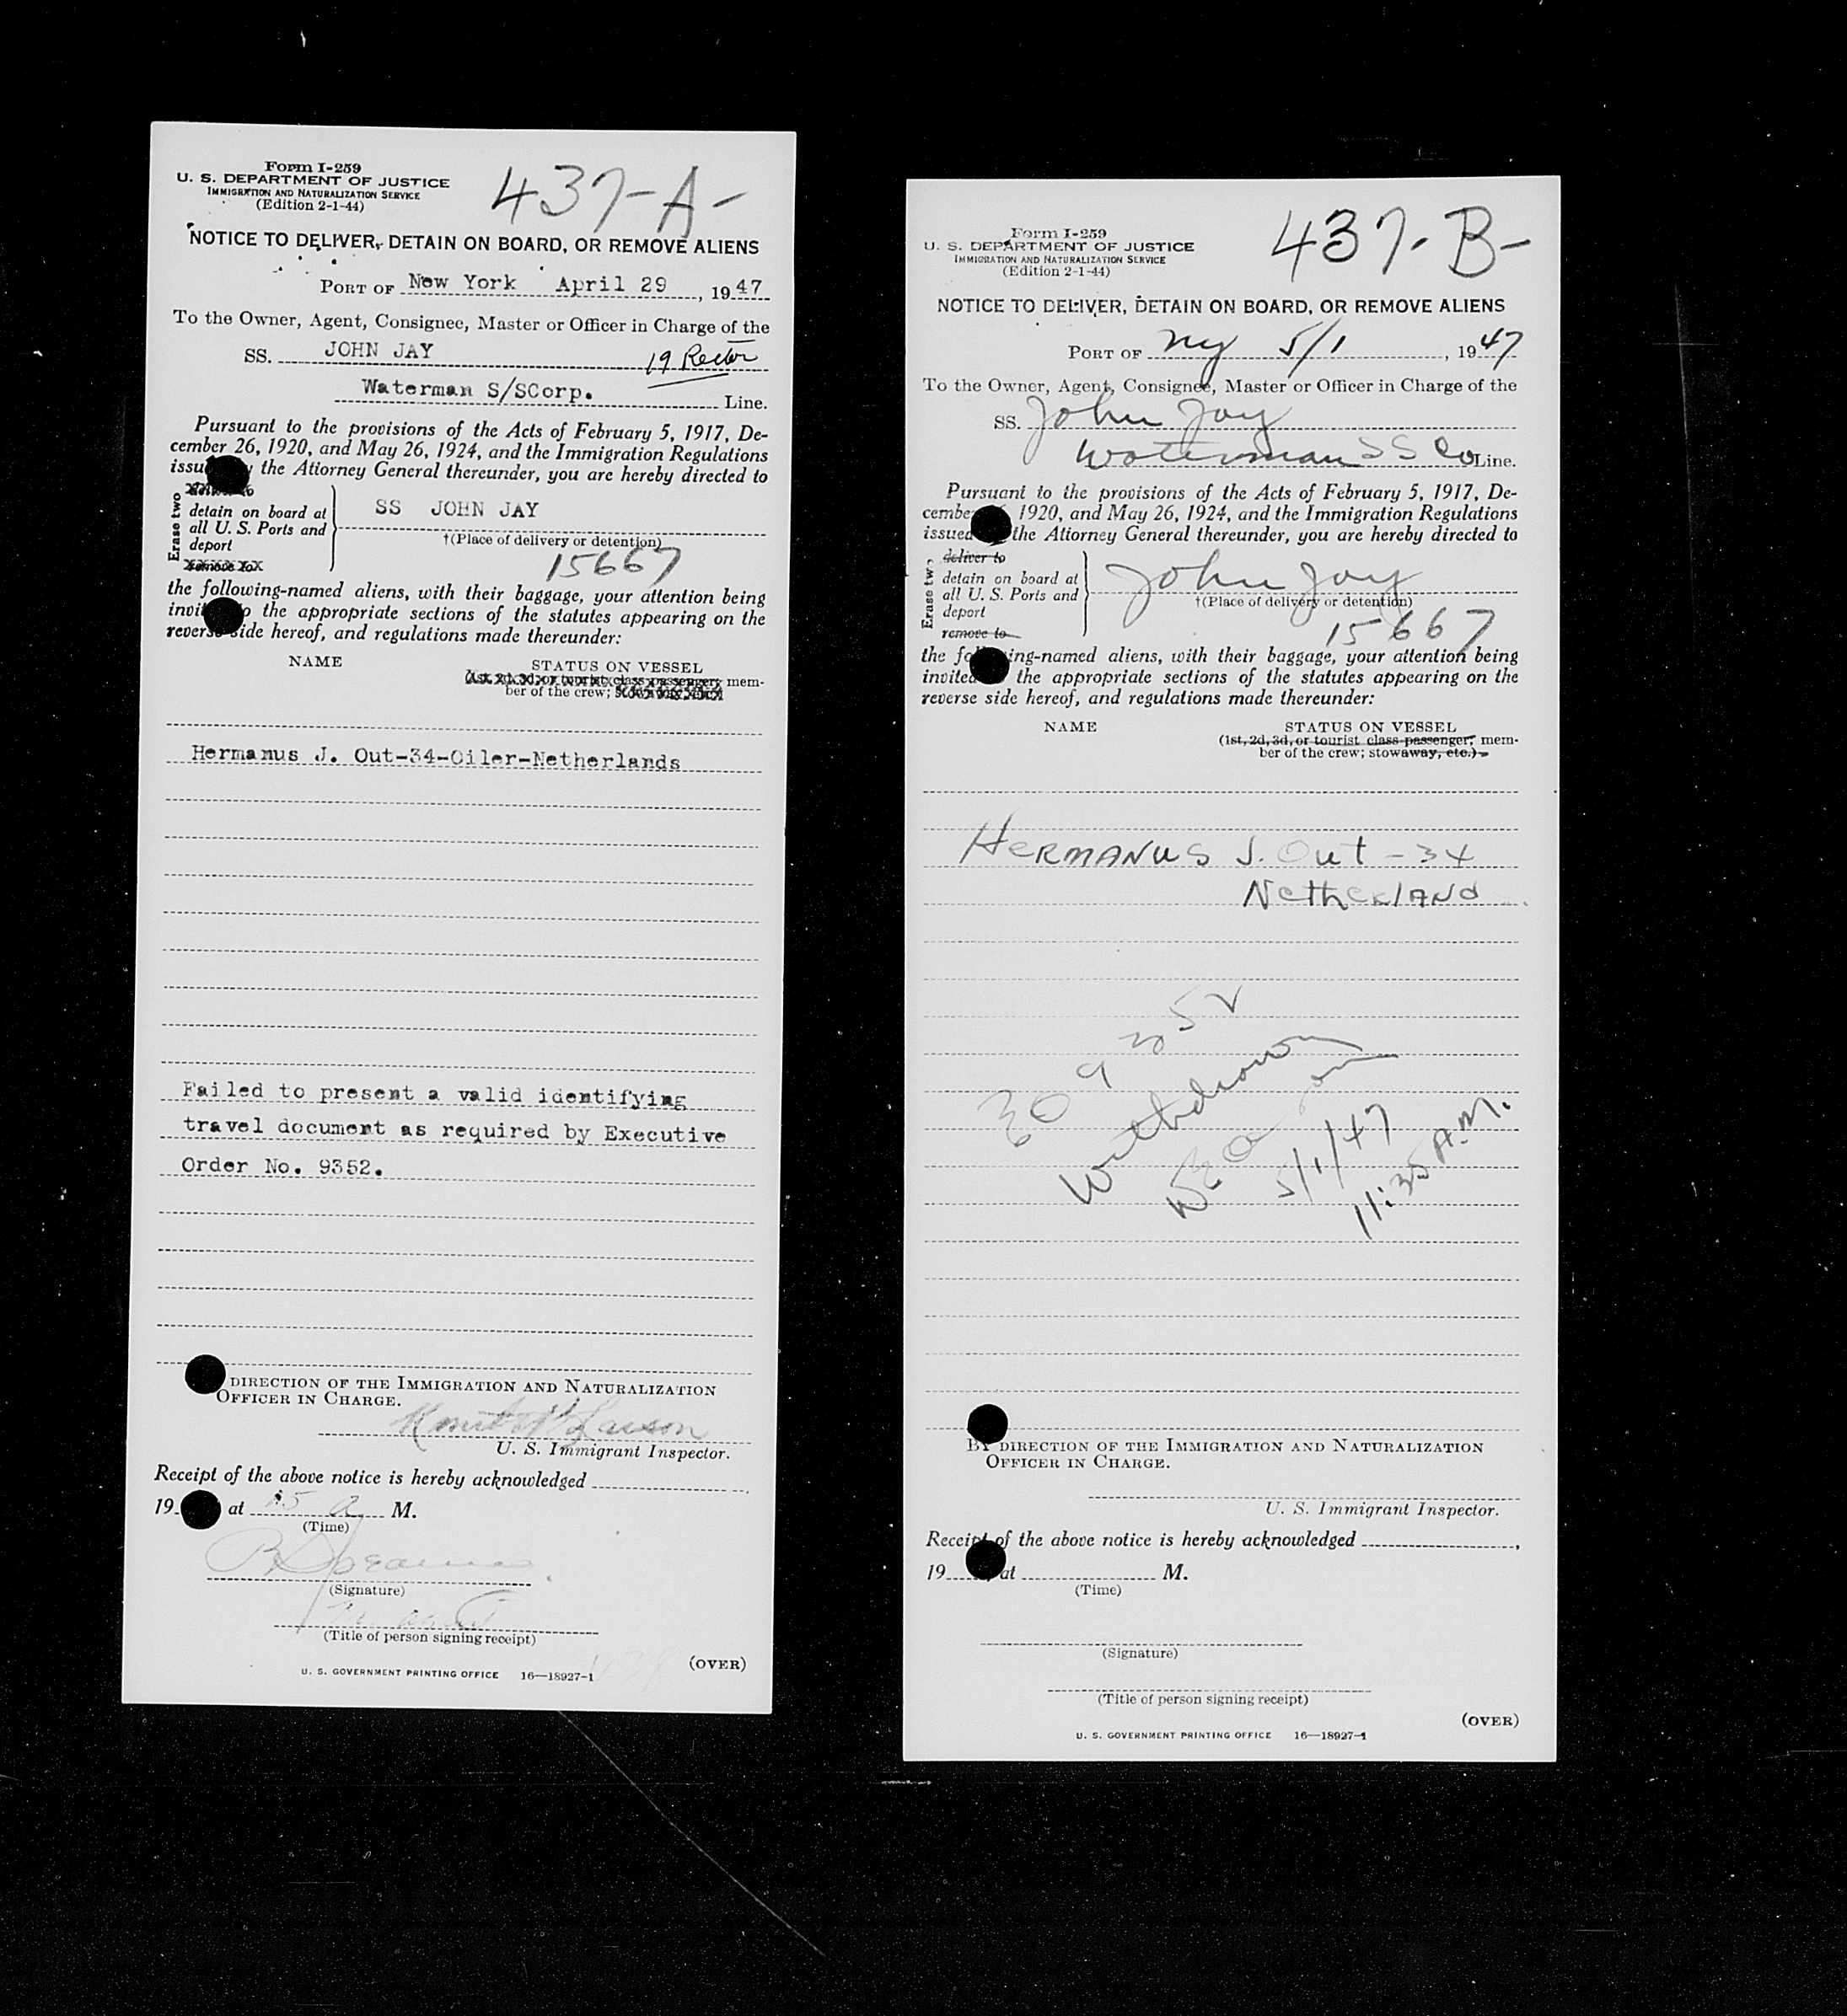 Form I-259
U. S. DEPARTMENT OF JUSTICE
IMMIGRATION AND NATURALIZATION SERVICE
(Edition 2-1-44)
437-A-
NOTICE TO DELIVER, DETAIN ON BOARD, OR REMOVE ALIENS
PORT OF New York April 29, 1947
To the Owner, Agent, Consignee, Master or Officer in Charge of the
SS. JOHN JAY 19 Rector
Waterman S/SCorp. Line.
Pursuant to the provisions of the Acts of February 5, 1917, De-
cember 26, 1920, and May 26, 1924, and the Immigration Regulations
issu the Attorney General thereunder, you are hereby directed to
Erase two
deliver to
detain on board at
all U. S. Ports and
deport
remove to
SS JOHN JAY
†(Place of delivery or detention)
15667
the following-named aliens, with their baggage, your attention being
invi the appropriate sections of the statutes appearing on the
reverse side hereof, and regulations made thereunder:
NAME STATUS ON VESSEL
(1st, 2d, 3d, or tourist class passenger; mem-
ber of the crew; stowaway, etc.)
Hermanus J. Out-34-Oiler-Netherlands
Failed to present a valid identifying
travel document as required by Executive
Order No. 9352.
DIRECTION OF THE IMMIGRATION AND NATURALIZATION
OFFICER IN CHARGE.
Larson
U. S. Immigrant Inspector.
Receipt of the above notice is hereby acknowledged
19 at A M.
(Time)
(Signature)
(Title of person signing receipt)
U. S. GOVERNMENT PRINTING OFFICE 16—18927-1
(OVER)
Form I-259
U. S. DEPARTMENT OF JUSTICE
IMMIGRATION AND NATURALIZATION SERVICE
(Edition 2-1-44)
437-B-
NOTICE TO DELIVER, DETAIN ON BOARD, OR REMOVE ALIENS
PORT OF ny 5/1, 1947
To the Owner, Agent, Consignee, Master or Officer in Charge of the
SS. John Jay
Waterman SS Co Line.
Pursuant to the provisions of the Acts of February 5, 1917, De-
cembe 1920, and May 26, 1924, and the Immigration Regulations
issued the Attorney General thereunder, you are hereby directed to
Erase two
deliver to
detain on board at
all U. S. Ports and
deport
remove to
John Jay
†(Place of delivery or detention)
15667
the fo ing-named aliens, with their baggage, your attention being
invited the appropriate sections of the statutes appearing on the
reverse side hereof, and regulations made thereunder:
NAME STATUS ON VESSEL
(1st, 2d, 3d, or tourist class passenger; mem-
ber of the crew; stowaway, etc.)
HERMANUS J. Out - 34
NetherLANd
Withdrawn
5/1/47
11:35 A.M.
BY DIRECTION OF THE IMMIGRATION AND NATURALIZATION
OFFICER IN CHARGE.
U. S. Immigrant Inspector.
Receipt of the above notice is hereby acknowledged
19 at M.
(Time)
(Signature)
(Title of person signing receipt)
(OVER)
U. S. GOVERNMENT PRINTING OFFICE 16—18927-1